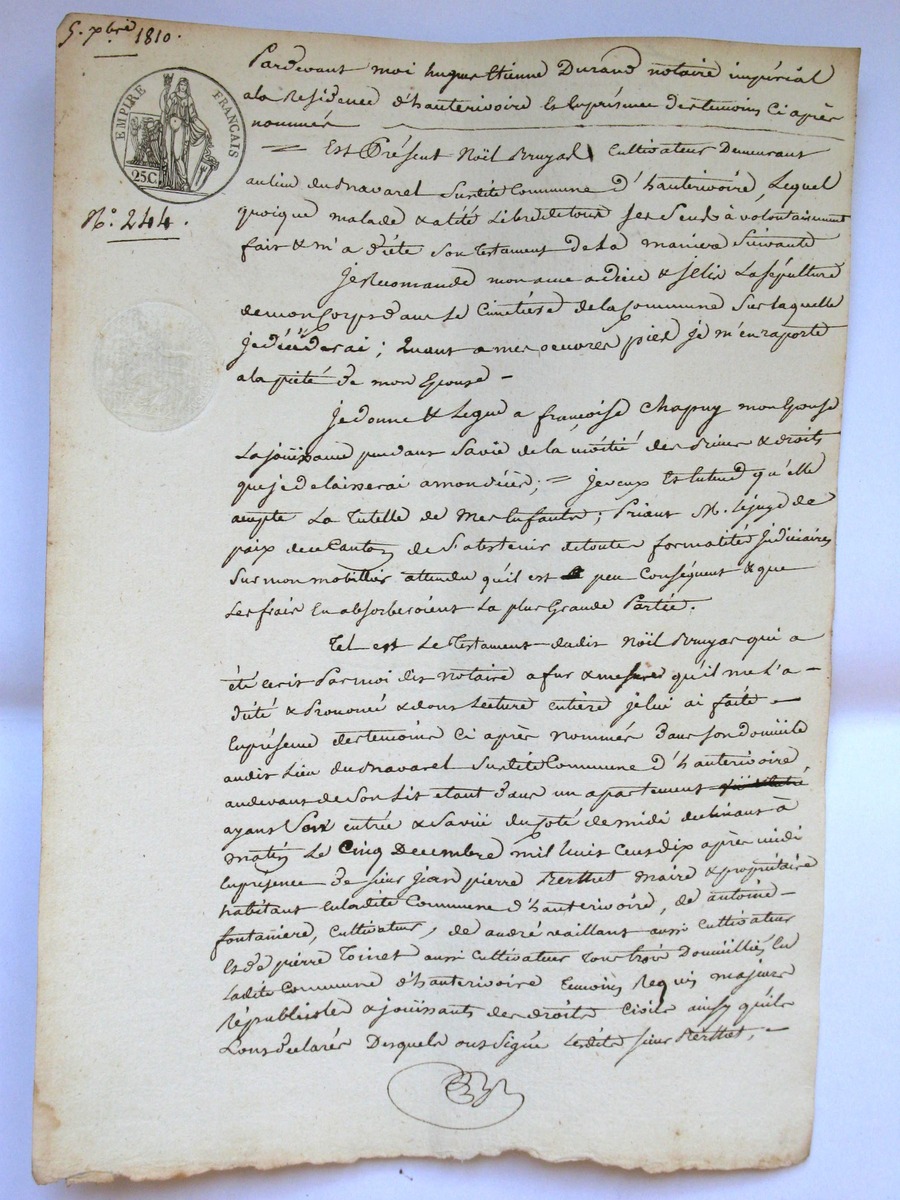 5. xbre 1810.
EMPIRE FRANÇAIS
25C.
N.o 244.
Pardevant moi hugue Etienne Durand notaire impérial
ala Residence d'hauterivoire & En présence des temoins Ci après
nommés
= Est Présent Noël Bruyas Cultivateur Demeurant
au lieu du navaret Sur dité Commune d'hauterivoire, Lequel
quoique malade & alité Libre de tous ses Sens à volontairement
fait & m'a dicté Son testament de la maniere Suivante
Je Recomande mon ame a dieu & jelis La sépulture
de mon Corps dans le Cimetière de la Commune Sur laquelle
je décéderai ; Quant a mes oeuvres pies je m'en raporte
a la piété de mon Epouse –
Je donne & Legue a françoise Chapuy mon Epouse
La joüissance pendant Sa vie de la moitié des Biens & droits
que je delaisserai a mon décès ; = je veux & entend qu'elle
accepte La Tutelle de Mes Enfants ; Priant M. le juge de
paix de ce Canton de S'abstenir de toutes formalités judiciaires
Sur mon mobillier attendu qu'il est peu Conséquent & que
Les frais En absorberoient La plus Grande Partie.
Tel est Le Testament dudit Noël Bruyas qui a
été écrit Par moi dit notaire a fur & mesure qu'il me L'a –
dicté & Prononcé & dont Lecture entière je lui ai faite –
En présence des temoins Ci après nommés dans son domicile
audit Lieu du navaret Sur dité Commune d'hauterivoire,
au devant de Son Lit etant dans un apartement
ayant Son entrée & Sa vüe du coté de midi declinant à
matin Le Cinq Decembre mil huit Cent dix après midi
En présence de sieur jean pierre Berthet maire & propriétaire
habitant En ladite Commune d'hauterivoire, de antoine –
fontaniere, Cultivateur, de andré vaillant aussi Cultivateur
Et de pierre Toinet aussi Cultivateur Tous trois Domiciliés En
Ladite Commune d'hauterivoire Temoins Requis majeurs
Républicole & joüissants des droits Civils ainsy qu'ils
L'ont declarés Desquels ont Signé Ledit sieur Berthet, –